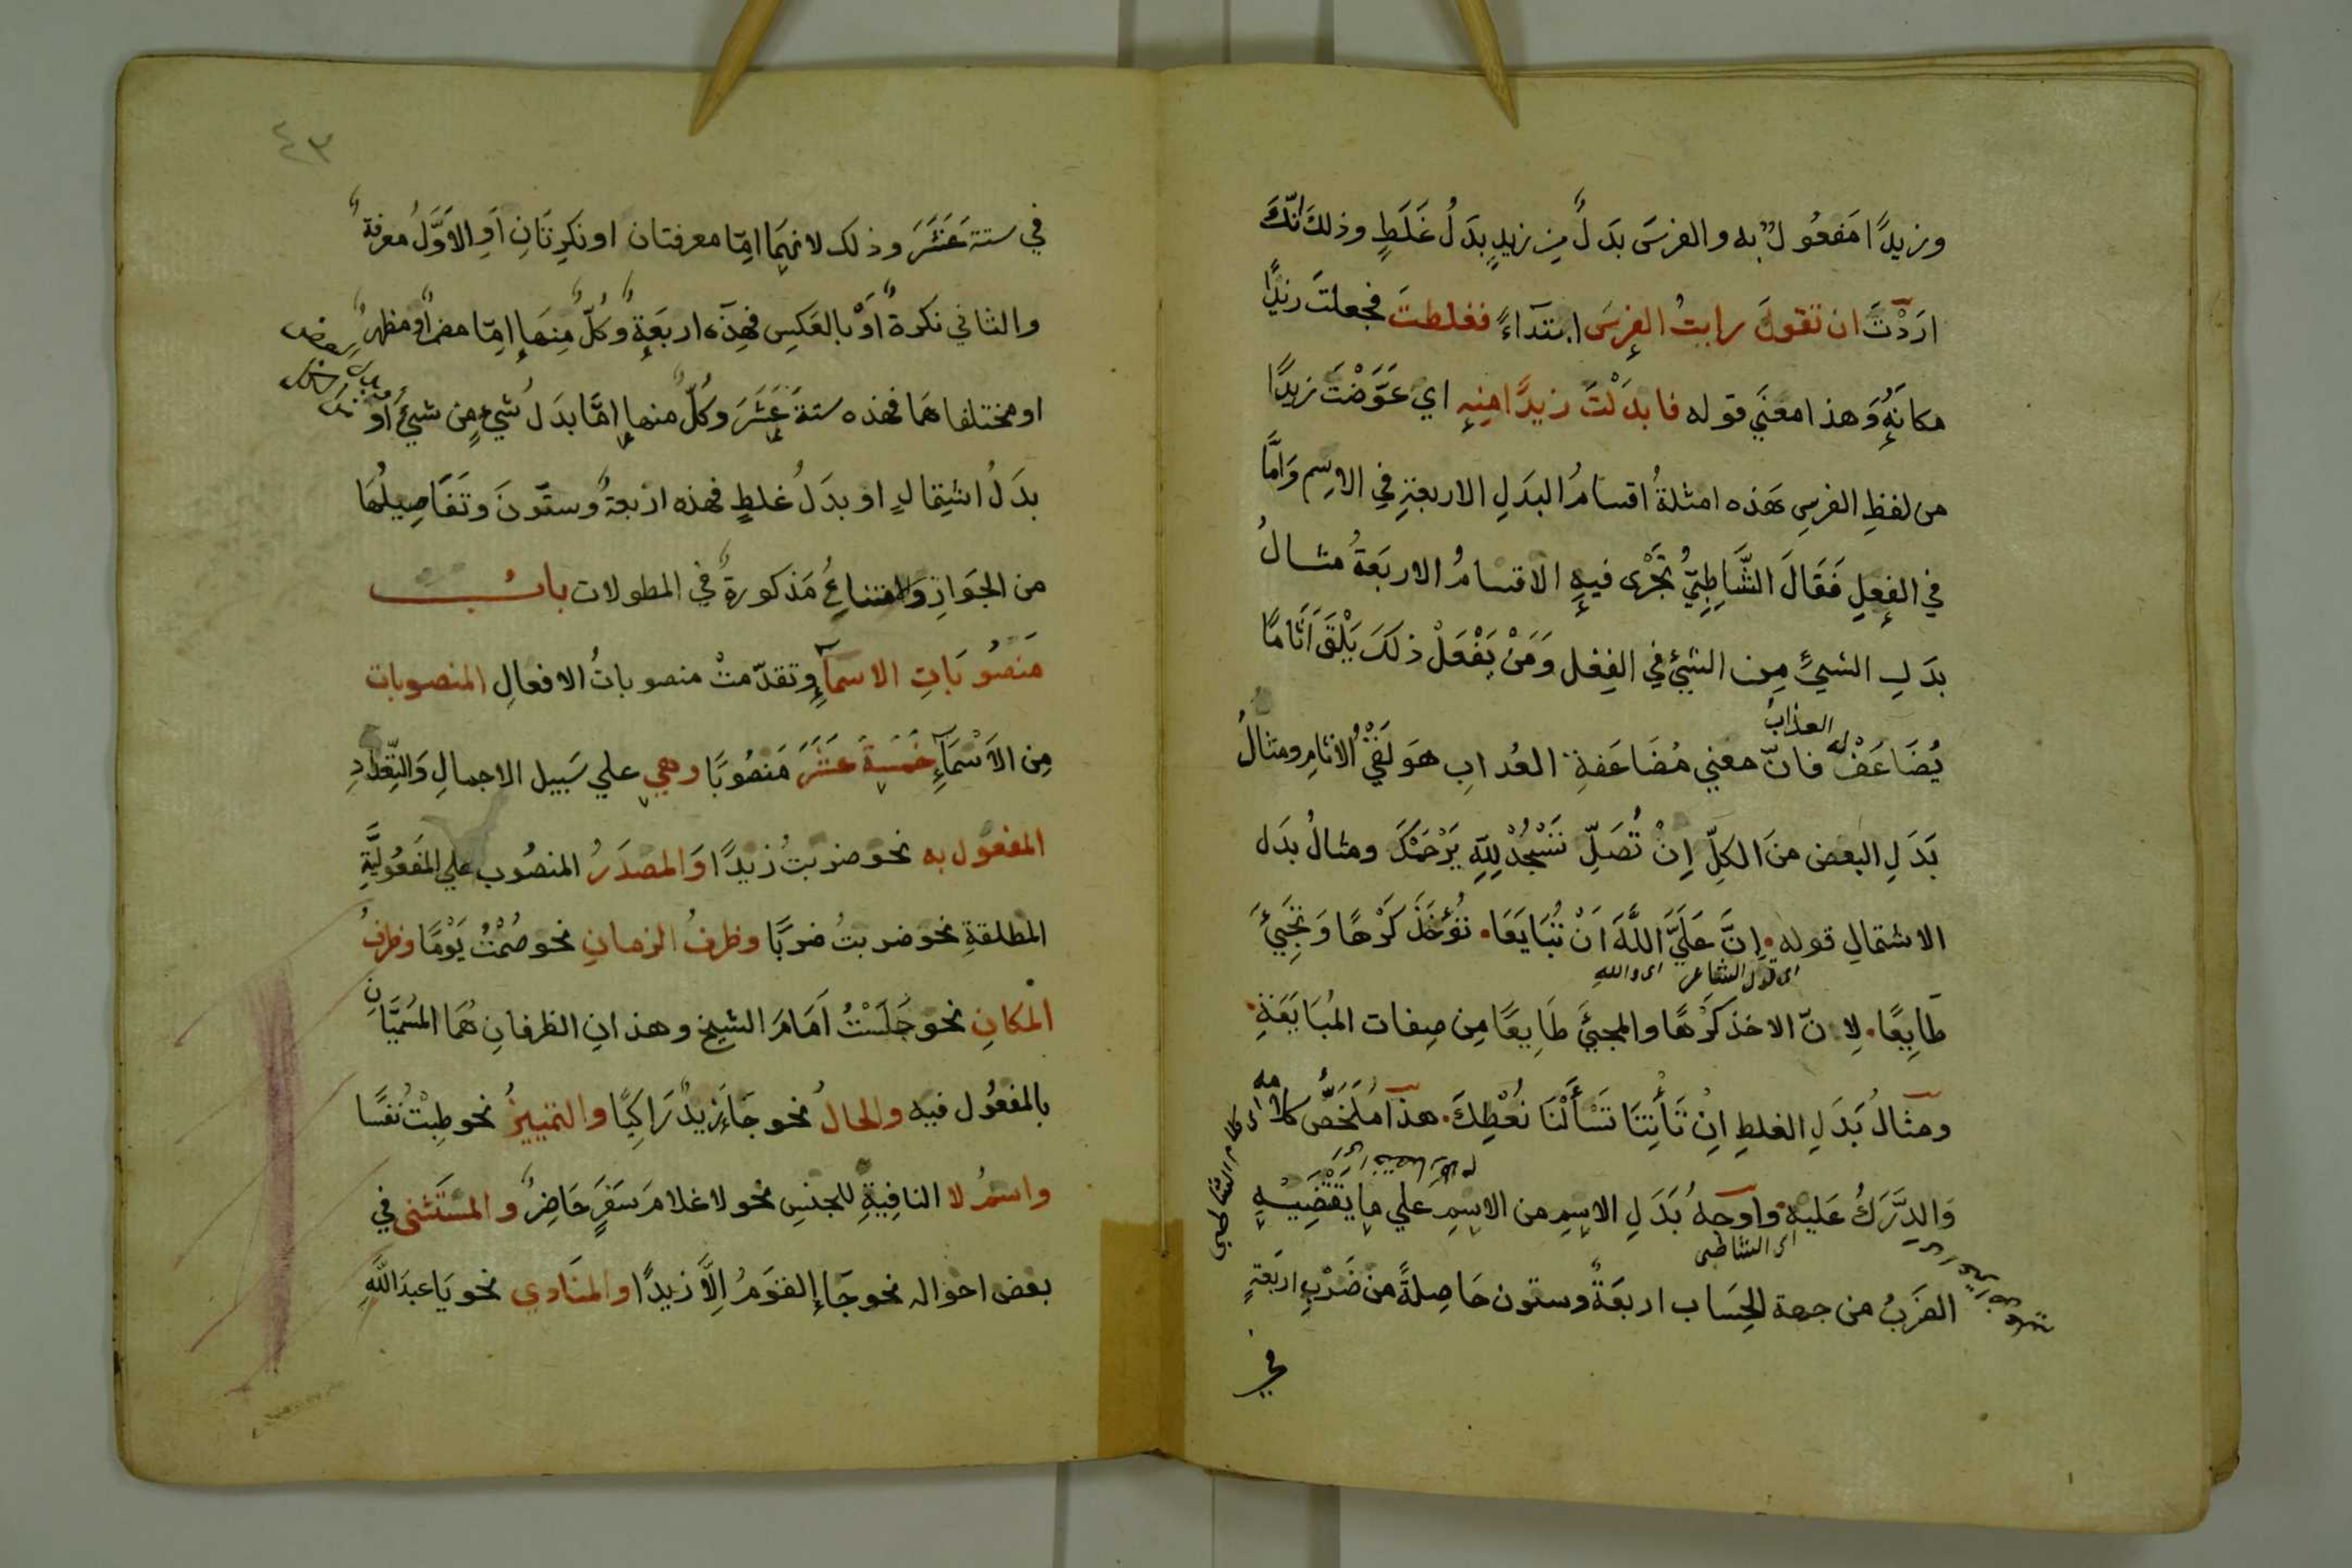 وزيدًا مَفعُولٌ به والفرسَ بدَلٌ مِن زيدٍ بدَلُ غَلَطٍ وذلك انّكَ
ارَدْتَ ان تقولَ رايتُ الفرسَ ابتداءً فغلطتَ فجعلتَ زيدًا
مكانَهُ وَهذا معنَي قوله فابدَلْتَ زيدًا مِنه اي عَوَّضْتَ زيدًا
من لفظِ الفرسِ بهذه امثلةُ اقسامُ البدَلِ الاربعةِ في الاسِم وَامَّا
في الفِعلِ فَقَالَ الشَّاطِبِيُّ تَجْرَى فيهِ الاقسامُ الاربَعَةُ مثالُ
بدَلِ الشيءِ مِن الشيئ في الفِعْل وَمَنْ يَفْعَلْ ذلكَ يَلْقَ اَثَامًا
العذابُ
يُضَاعَفْ لَهُ فانّ معني مُضَاعَفةِ العذابِ هوَ لَقْيُ الاثامِ ومثالُ
بَدَلِ البعضِ منَ الكلِّ اِنْ تُصَلِّ تَسْجُدْ لِلّهِ يَرْحَمْكَ ومثالُ بدَل
الاشتمالِ قوله اِنَّ عَلَيَّ اللَّهَ اَنْ تُبَايَعَا تُؤْخَذَ كَرْهًا وَ تَجِيئَ
اى قول الشاعر اى والله
طَايِعًا لِانّ الاخذ كَرْهًا والمجيئَ طَايِعًا مِن صِفات المُبَايَعَةِ
ومثالُ بَدَلِ الغلطِ اِنْ تَأْتِنَا تَسْأَلْنَا نُعْطِكَ هذا مُلَخَّصُ كلامه
اى كلام الشاطبى
وَالدَّرَكُ عَليه واوجهُ بَدَلِ الاسِمِ من الاسِمِ علي ما يَقْتَضِيهِ
اى الشاطبى
الضَرْبُ من جهة الحِسَاب اربعَةٌ وستون حَاصِلةً من ضَرْبِ اربَعَةٍ
في
٤٣
في ستةَ عَشَرَ وذلك لانهمَا امِّا معرفتان او نكِرتَانِ اَوِ الاَوَّلُ معرفةٌ
والثاني نكرةٌ اَوْ بالعَكسِ فهذه اربَعَةٌ وكُلٌّ مِنهَا اِمّا مضمرٌ او مظهرٌ
او مختلفاهما فهذه ستةَ عَشَرَ وكُلٌّ منها اِمَّا بدَلُ شيءٍ مِن شيءٍ اَوْ
بدل بعض من كل
بدَلُ اشتِمالٍ او بدَلُ غلطٍ فهذه اربعةٌ وستّونَ وتَفَاصِيلُهَا
من الجَوَازِ وَالامتناعِ مَذكورةٌ في المطولات بابُ
مَنصُوبَاتِ الاسمآءِ وتقدّمتْ منصوباتُ الافعالِ المنصوبات
مِن الاَسْمَآءِ خَمسةَ عَشَرَ مَنصُوبًا وهي علي سَبيل الاجمالِ وَالتِّعْدادِ
المفعول به نحو ضربتُ زيدًا وَالمصدَرُ المنصُوب علي المَفعُوليَّةِ
المطلقةِ نحو ضربتُ ضربًا وظرفُ الزمانِ نحو صُمْتُ يَوْمًا وظرفُ
المكانِ نحو جَلَسْتُ اَمَامَ الشيخِ وهذانِ الظرفانِ هُمَا المُسَمَّيَانِ
بالمفعُول فيه والحالُ نحو جَاءَ زيدٌ رَاكِبًا والتمييزُ نحو طِبْتُ نفسًا
واسمُ لا النافِيةِ للجنسِ نحو لا غلامَ سَفَرٍ حَاضِرٌ والمستَثنى في
بعض احواله نحو جَاءَ القَوَمُ اِلَّا زيدًا والمنَادي نحو يَا عبدَ اللَّهِ